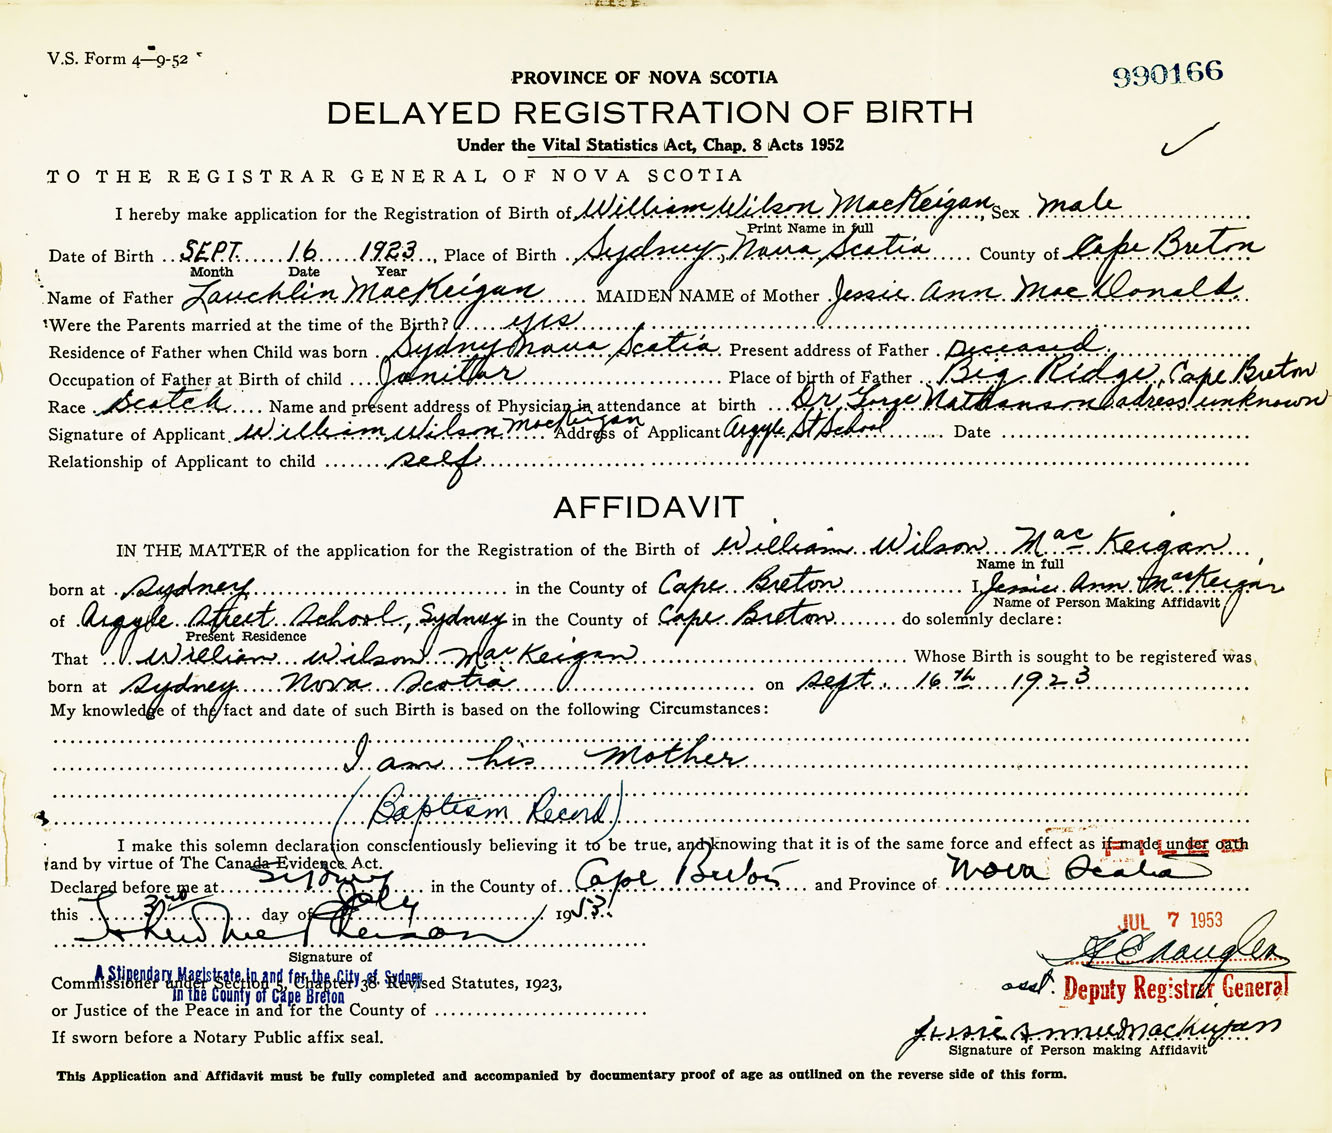 V.S. Form 4-9-52
990166
PROVINCE OF NOVA SCOTIA
DELAYED REGISTRATION OF BIRTH
Under the Vital Statistics Act, Chap. 8 Acts 1952
TO THE REGISTRAR GENERAL OF NOVA SCOTIA
I hereby make application for the Registration of Birth of William Wilson MacKeigan, Sex male
Print Name in full
Date of Birth SEPT. 16 1923, Place of Birth Sydney, Nova Scotia County of Cape Breton
Month Date Year
Name of Father Lauchlin MacKeigan MAIDEN NAME of Mother Jessie Ann MacDonald
Were the Parents married at the time of the Birth? yes
Residence of Father when Child was born Sydney Nova Scotia Present address of Father Deceased
Occupation of Father at Birth of child Janitor Place of birth of Father Big Ridge, Cape Breton
Race Scotch Name and present address of Physician in attendance at birth Dr. Nathanson adress unknown
Signature of Applicant William Wilson MacKeigan Address of Applicant Argyle St School Date
Relationship of Applicant to child self
AFFIDAVIT
IN THE MATTER of the application for the Registration of the Birth of William Wilson MacKeigan
Name in full
born at Sydney in the County of Cape Breton I Jessie Ann MacKeigan
Name of Person Making Affidavit
of Argyle Street School, Sydney in the County of Cape Breton do solemnly declare:
Present Residence
That William Wilson MacKeigan Whose Birth is sought to be registered was
born at Sydney Nova Scotia on Sept. 16th 1923
My knowledge of the fact and date of such Birth is based on the following Circumstances:
I am his Mother
(Baptism Record)
I make this solemn declaration conscientiously believing it to be true, and knowing that it is of the same force and effect as if made under oath
and by virtue of The Canada Evidence Act.
FILED
Declared before me at Sydney in the County of Cape Breton and Province of Nova Scotia
this 3rd day of July 1953
JUL 7 1953
Signature of
A Stipendary Magistrate in and for the City of Sydney
in the County of Cape Breton
Commissioner under Section 5, Chapter 38 Revised Statutes, 1923,
asst. Deputy Registrar General
or Justice of the Peace in and for the County of
Jessie Annie MacKeigan
If sworn before a Notary Public affix seal.
Signature of Person making Affidavit
This Application and Affidavit must be fully completed and accompanied by documentary proof of age as outlined on the reverse side of this form.